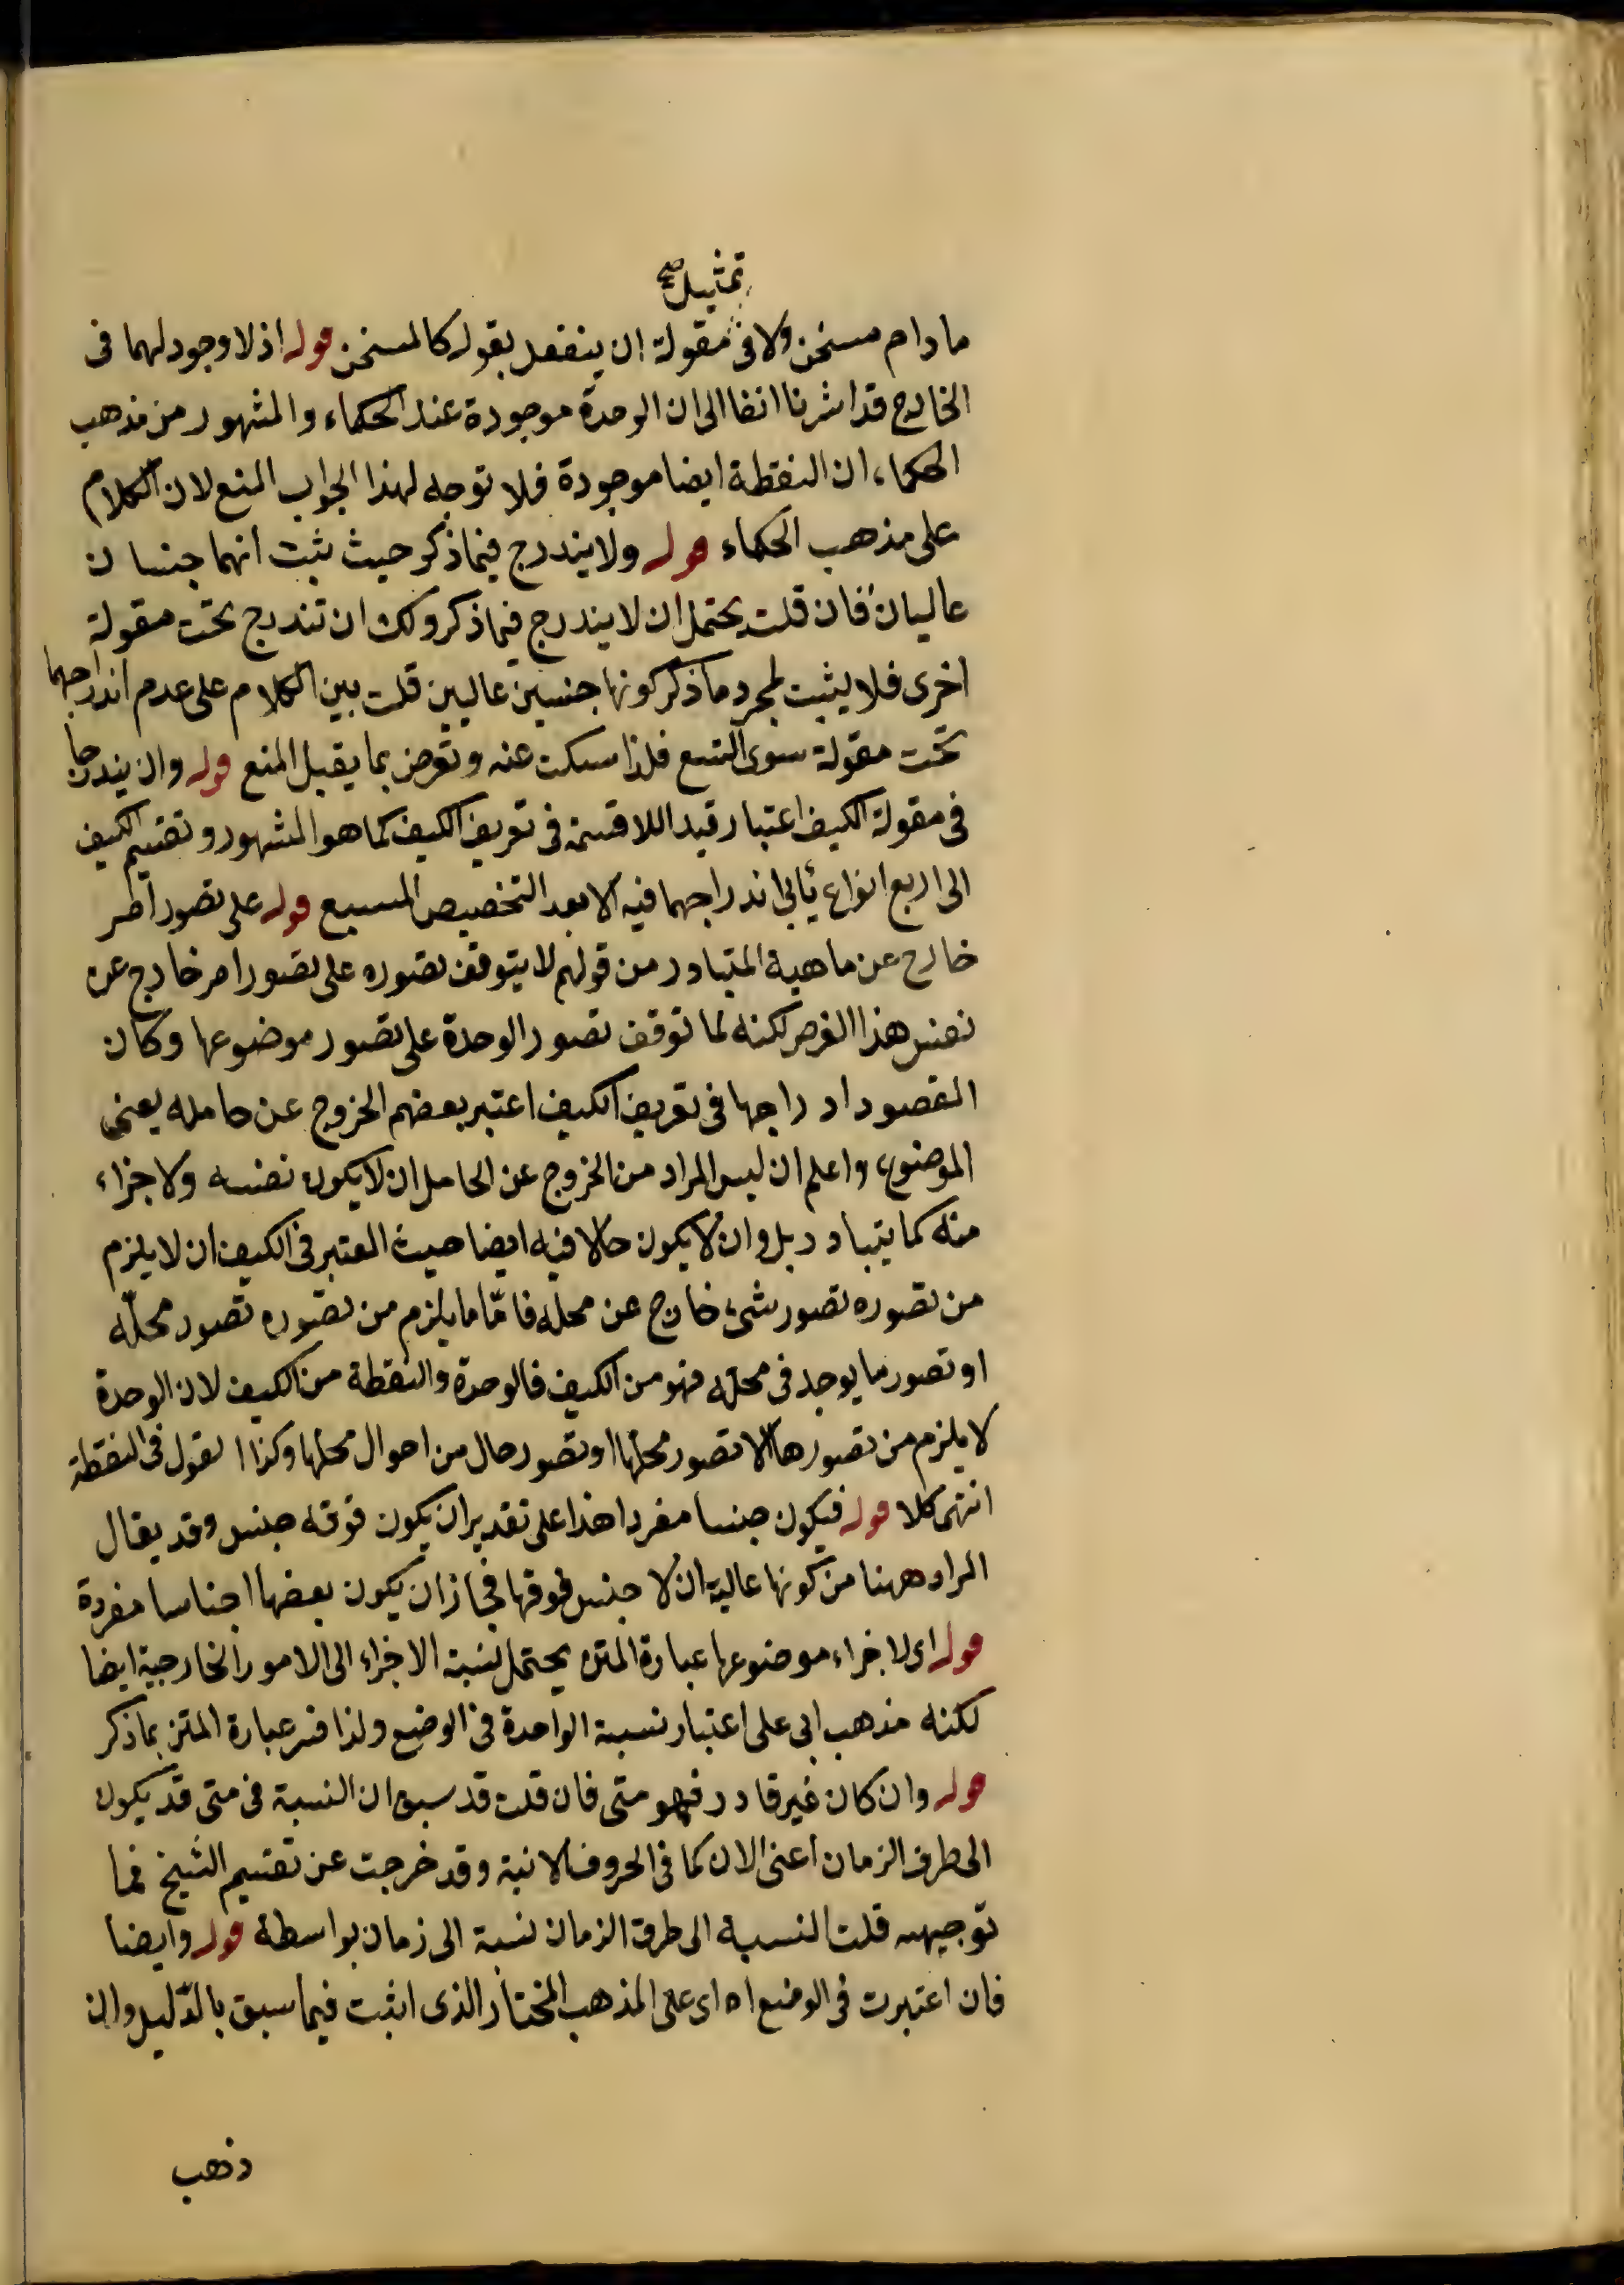 تمثيل صح
ما دام مسخن ولا فى مقولة ان ينفعل بقوله كالمسخن قوله اذ لا وجود لهما فى
الخارج قد اشرنا انفا الى ان الوحدة موجودة عند الحكماء والمشهور من مذهب
الحكماء ان النقطة ايضا موجودة فلا توجه لهذا الجواب المنع لان الكلام
على مذهب الحكماء قوله ولا يندرج فيما ذكر حيث يثبت انهما جنسان
عاليان فان قلت يحتمل ان لا يندرج فيما ذكر ولك ان تندرج تحت مقولة
اخرى فلا يثبت بمجرد ما ذكر كونها جنسين عاليين قلت بين الكلام على عدم اندراجهما
تحت مقولة سوى التسع فلذا سكت عنه وتعرض بما يقبل المنع قوله وان يندرجا
فى مقولة الكيف اعتبار قيد اللاقسمة فى تعريف الكيف كما هو المشهور وتقسيم الكيف
الى اربع انواع يأبى اندراجهما فيه الا بعد التخصيص المسبع قوله على تصور امر
خارج عن ماهية المتبادر من قولهم لا يتوقف تصوره على تصور امر خارج عن
نفس هذا الغرض لكنه لما توقف تصور الوحدة على تصور موضوعها وكان
المقصود ادراجها فى تعريف الكيف اعتبر بعضهم الخروج عن حامله يعنى
الموضوع واعلم ان ليس المراد من الخروج عن الحامل ان لا يكون نفسه ولا جزاء
منه كما يتبادر بل وان لا يكون حالا فيه ايضا حيث المعتبر فى الكيف ان لا يلزم
من تصوره تصور شىء خارج عن محله فامّا ما يلزم من تصوره تصور محلّه
او تصور ما يوجد فى محله فهو من الكيف فالوحدة والنقطة من الكيف لان الوحدة
لا يلزم من تصورها الا تصور محلها او تصور حال من احوال محلها وكذا القول فى النقطة
انتهى كلا قوله فيكون جنسا مفردا هذا على تقدير ان يكون فوقه جنس وقد يقال
المراد ههنا من كونها عالية ان لا جنس فوقها فجاز ان يكون بعضها اجناسا مفردة
قوله اى لاجزاء موضوعها عبارة المتن يحتمل نسبة الاجزاء الى الامور الخارجية ايضا
لكنه مذهب ابى على اعتبار نسبة الواحدة فى الوضع ولذا فسر عبارة المتن بما ذكر
قوله وان كان غير قادر فهو متى فان قلت قد سبق ان النسبة فى متى قد يكون
الى طرف الزمان اعنى الان كما فى الحروف الانية وقد خرجت عن تقسيم الشيخ فما
توجيهه قلت النسبة الى طرف الزمان نسبة الى زمان بواسطة قوله وايضا
فان اعتبرت فى الوضع اه اى على المذهب المختار الذى اثبت فيما سبق بالدّليل وان
ذهب